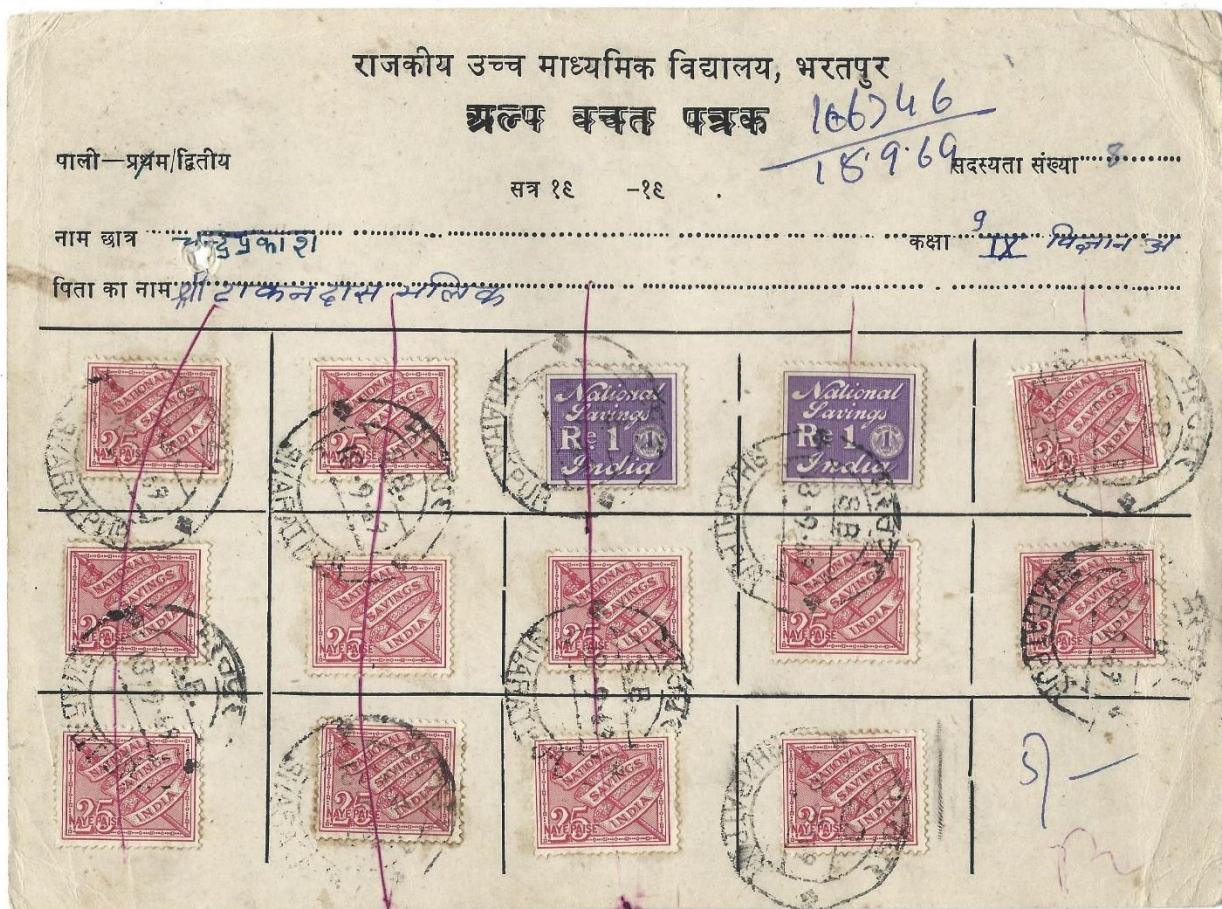 राजकीय उच्च माध्यमिक विद्यालय, भरतपुर
अल्प बचत पत्रक
166746
18.9.69
पाली—प्रथम/द्वितीय
सदस्यता संख्या 8
सत्र १९ -१९ .
नाम छात्र चन्द्रप्रकाश कक्षा 9 IX विज्ञान अ
पिता का नाम श्री टाकनदास मलिक
NATIONAL SAVINGS INDIA 25 NAYE PAISE
NATIONAL SAVINGS INDIA 25 NAYE PAISE
National Savings Re 1 India
National Savings Re 1 India
NATIONAL SAVINGS INDIA 25 NAYE PAISE
BHARATPUR
BHARATPUR
BHARATPUR
BHARATPUR
भरतपुर
NATIONAL SAVINGS INDIA 25 NAYE PAISE
NATIONAL SAVINGS INDIA 25 NAYE PAISE
NATIONAL SAVINGS INDIA 25 NAYE PAISE
NATIONAL SAVINGS INDIA 25 NAYE PAISE
NATIONAL SAVINGS INDIA 25 NAYE PAISE
BHARATPUR
भरतपुर
BHARATPUR
भरतपुर
BHARATPUR
NATIONAL SAVINGS INDIA 25 NAYE PAISE
NATIONAL SAVINGS INDIA 25 NAYE PAISE
NATIONAL SAVINGS INDIA 25 NAYE PAISE
NATIONAL SAVINGS INDIA 25 NAYE PAISE
5/—